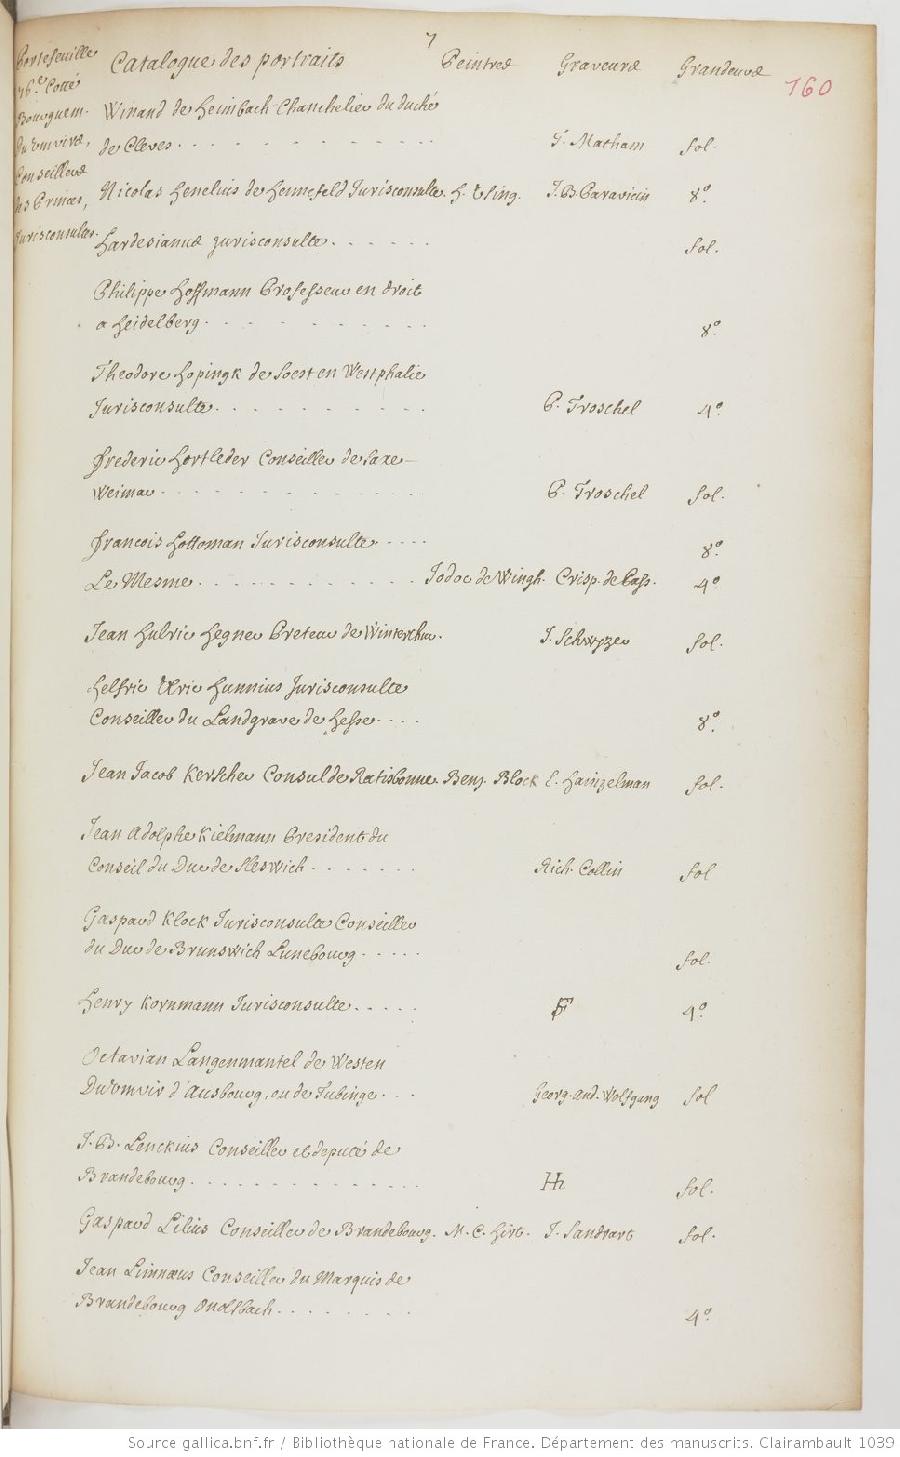 7
160
Portefeuille
76e Cotté
Bourguem.
Duumvirs,
Conseillers
des Princes,
Jurisconsultes.
Catalogue des portraits Peintres Graveurs Grandeurs
Winand de Heimbach Chanchelier du duché
de Cleves . . . . . . . . . . . . T. Matham fol.
Nicolas Henelius de Hennefeld Jurisconsulte. H. Using. J. B. Paravicin 8o.
Hardesianus jurisconsulte . . . . . . fol.
Philippe Hoffmann Professeur en droit
a Heidelberg . . . . . . . . . 8o.
Theodore Hopingk de Soest en Westphalie
Jurisconsulte . . . . . . . . . . P. Troschel 4o.
Frederic Hortleder Conseiller de Saxe-
Weimar . . . . . . . . . . . . P. Troschel fol.
Francois Hottoman Jurisconsulte . . . . 8o.
Le Mesme . . . . . . . . . . . Jodoc de Wingh. Crisp. de Pass. 4o
Jean Hulric Hegner Preteur de Winterthur. J. Schwyzer fol.
Helfric Ulric Hunnius Jurisconsulte
Conseiller du Landgrave de Hesse . . . . 8o.
Jean Jacob Kerscher Consul de Ratisbonne. Benj. Block E. Hainzelman fol.
Jean Adolphe Kielmann President du
Conseil du Duc de Sleswich . . . . . . . Rich. Collin fol
Gaspard Klock Jurisconsulte Conseiller
du Duc de Brunswich Lunebourg . . . . . fol.
Henry Kornmann Jurisconsulte . . . . . 4o.
Octavian Langenmantel de Westen
Duumvir d'Ausbourg, ou de Tubinge . . . Georg. And. Wolfgang fol
J. B. Lenckius Conseiller et deputé de
Brandebourg . . . . . . . . . . . . . Hh fol.
Gaspard Lilius Conseiller de Brandebourg. M. C. Hirt. J. Sandrart fol.
Jean Limnæus Conseiller du Marquis de
Brandebourg Onoltbach . . . . . . . . 4o.
Source gallica.bnf.fr / Bibliothèque nationale de France. Département des manuscrits. Clairambault 1039